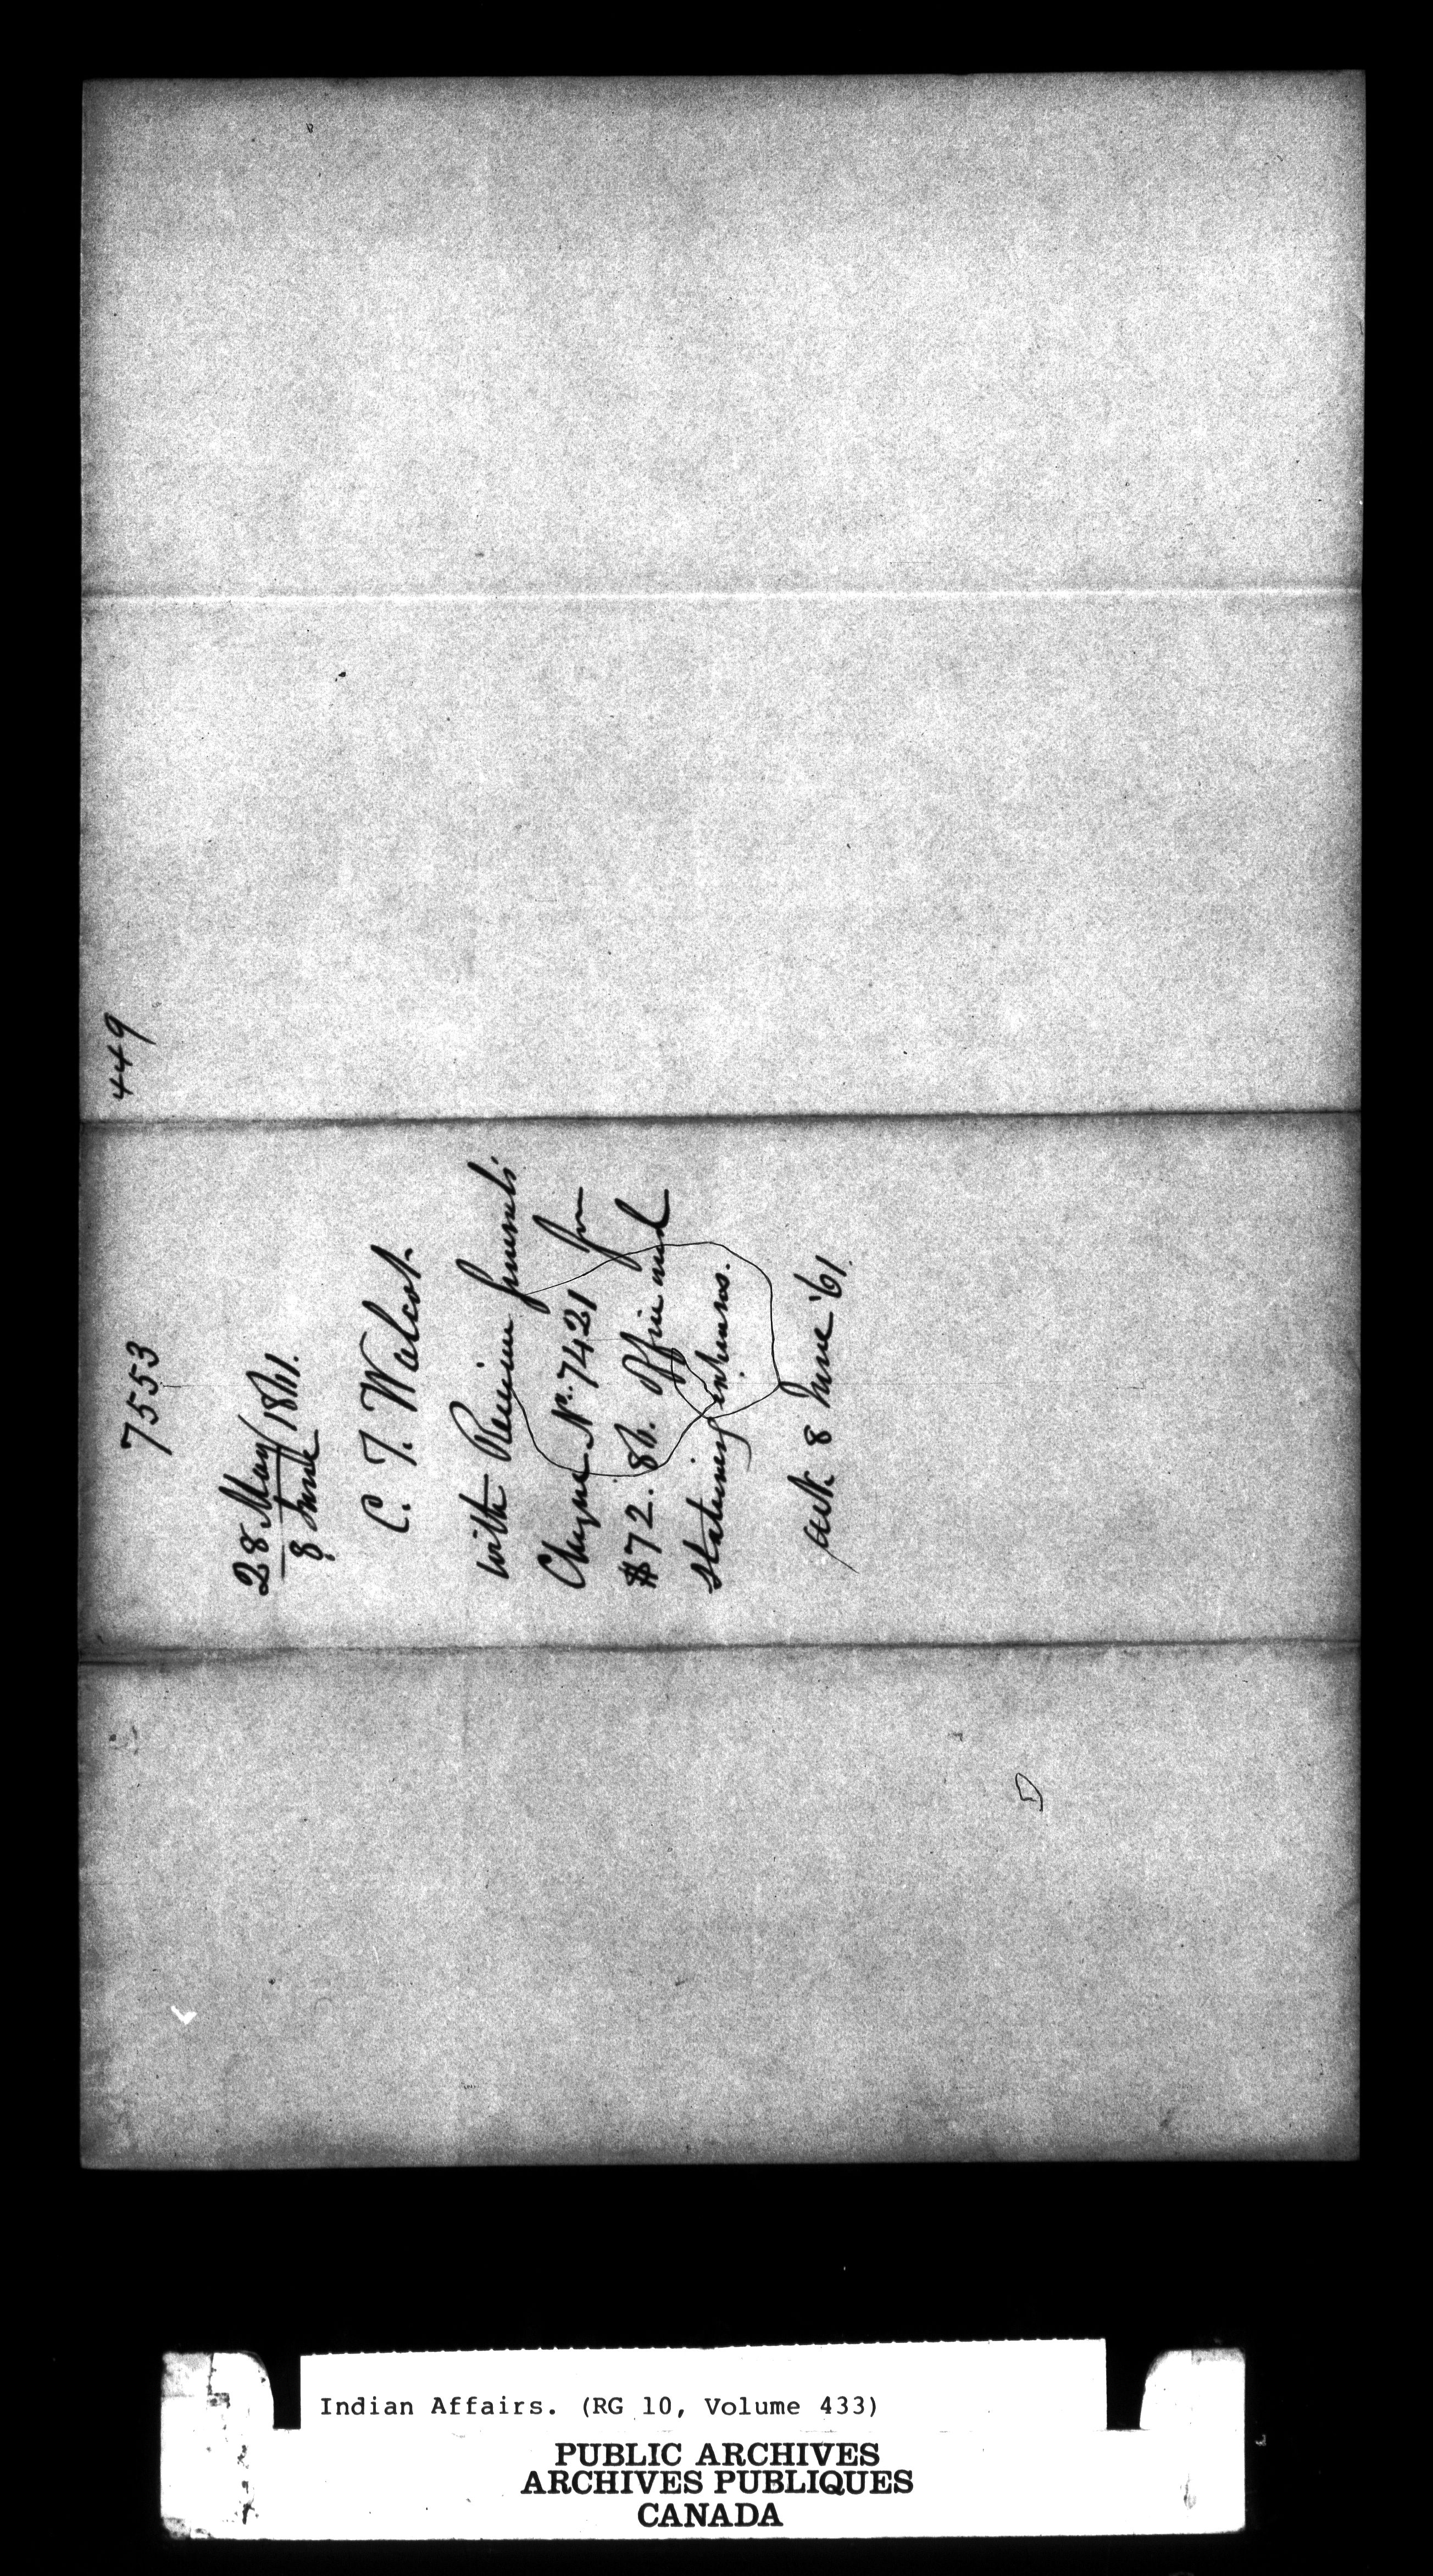 449
7553
28 May / 1861.
8 June
C. T. Walcot
with
Cheque No. 7421 for
$72.86. Office and
stationery expenses.
ack. 8 June '61.
Indian Affairs. (RG 10, Volume 433)
PUBLIC ARCHIVES
ARCHIVES PUBLIQUES
CANADA